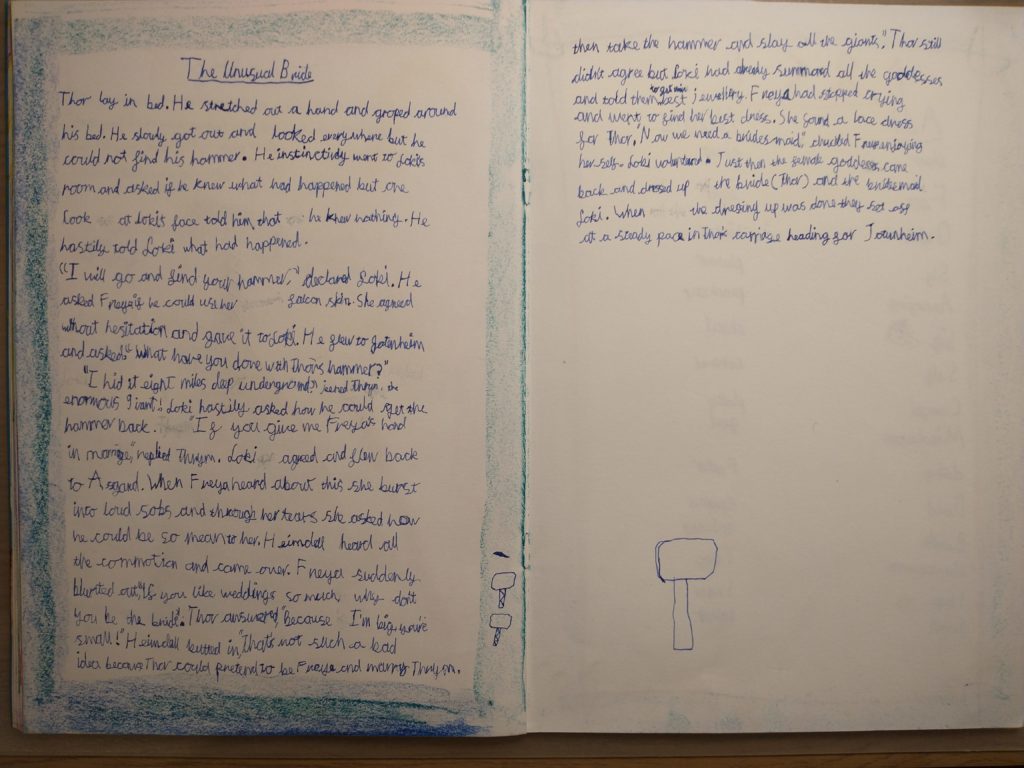 The Unusual Bride
Thor lay in bed. He stretched out a hand and groped around
his bed. He slowly got out and looked everywhere but he
could not find his hammer. He instinctivly went to Loki's
room and asked if he knew what had happened but one
look at Loki's face told him, that he knew nothing. He
hastily told Loki what had happened.
"I will go and find your hammer," declared Loki. He
asked Freya if he could use her falcon skin. She agreed
without hesitation and gave it to Loki. He flew to Jotunheim
and asked "What have you done with Thor's hammer?"
"I hid it eight miles deep underground," jeered Thrym, the
enormous giant! Loki hastily asked how he could get the
hammer back. "If you give me Freya's hand
in marrige," replied Thrym. Loki agreed and flew back
to Asgard. When Freya heard about this she burst
into loud sobs and through her tears she asked how
he could be so mean to her. Heimdall heard all
the commotion and came over. Freya suddenly
blurted out, "If you like weddings so much, why don't
you be the bride". Thor answered "because I'm big, you're
small!" Heimdall butted in, "That's not such a bad
idea because Thor could pretend to be Freya and marry Thrym.
then take the hammer and slay all the giants". Thor still
didn't agree but Loki had already summond all the goddesses
and told them to get their best jewellery. Freya had stopped crying
and went to find her best dress. She found a lace dress
for Thor. "Now we need a brides maid," chuckled Freya enjoying
her self. Loki volunterd. Just then the female goddesses came
back and dressed up the bride (Thor) and the bridesmaid
Loki. When the dressing up was done they set off
at a steady pace in Thor's carriage heading for Jotunheim.